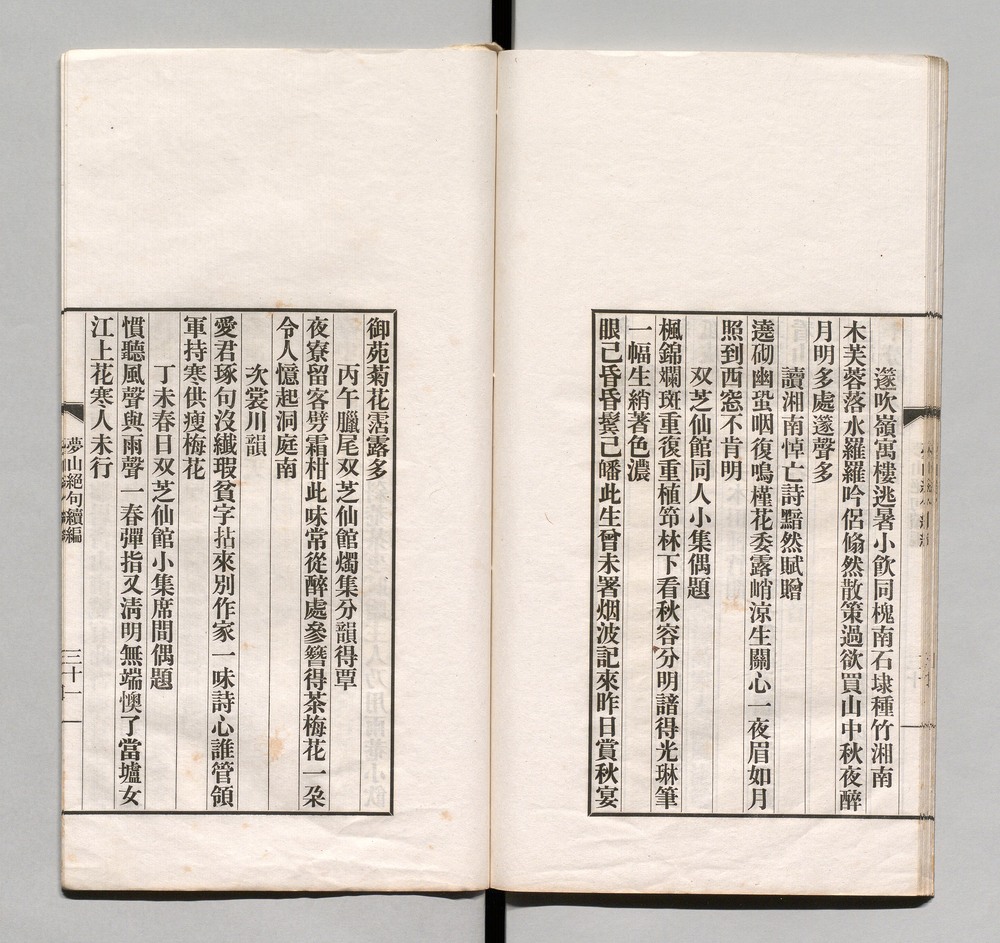 邃吹嶺寓樓逃暑小飲同槐南石埭種竹湘南
木芙蓉落水羅羅吟侶翛然散策過欲買山中秋夜醉
月明多處邃聲多
讀湘南悼亡詩黯然賦贈
遶砌幽蛩咽復鳴槿花委露峭涼生關心一夜眉如月
照到西窓不肯明
双芝仙館同人小集偶題
楓錦斕斑重復重植笻林下看秋容分明諳得光琳筆
一幅生綃著色濃
眼己昏昏鬢己皤此生曾未署烟波記來昨日賞秋宴
御苑菊花霑露多
丙午臘尾双芝仙館燭集分韻得覃
夜寮留客劈霜柑此味常從醉處參簪得茶梅花一朶
令人憶起洞庭南
次裳川韻
愛君琢句沒纖瑕貧字拈來別作家一味詩心誰管領
軍持寒供瘦梅花
丁未春日双芝仙館小集席間偶題
慣聽風聲與雨聲一春彈指又淸明無端懊了當壚女
江上花寒人未行
夢山絕句續編
三十一